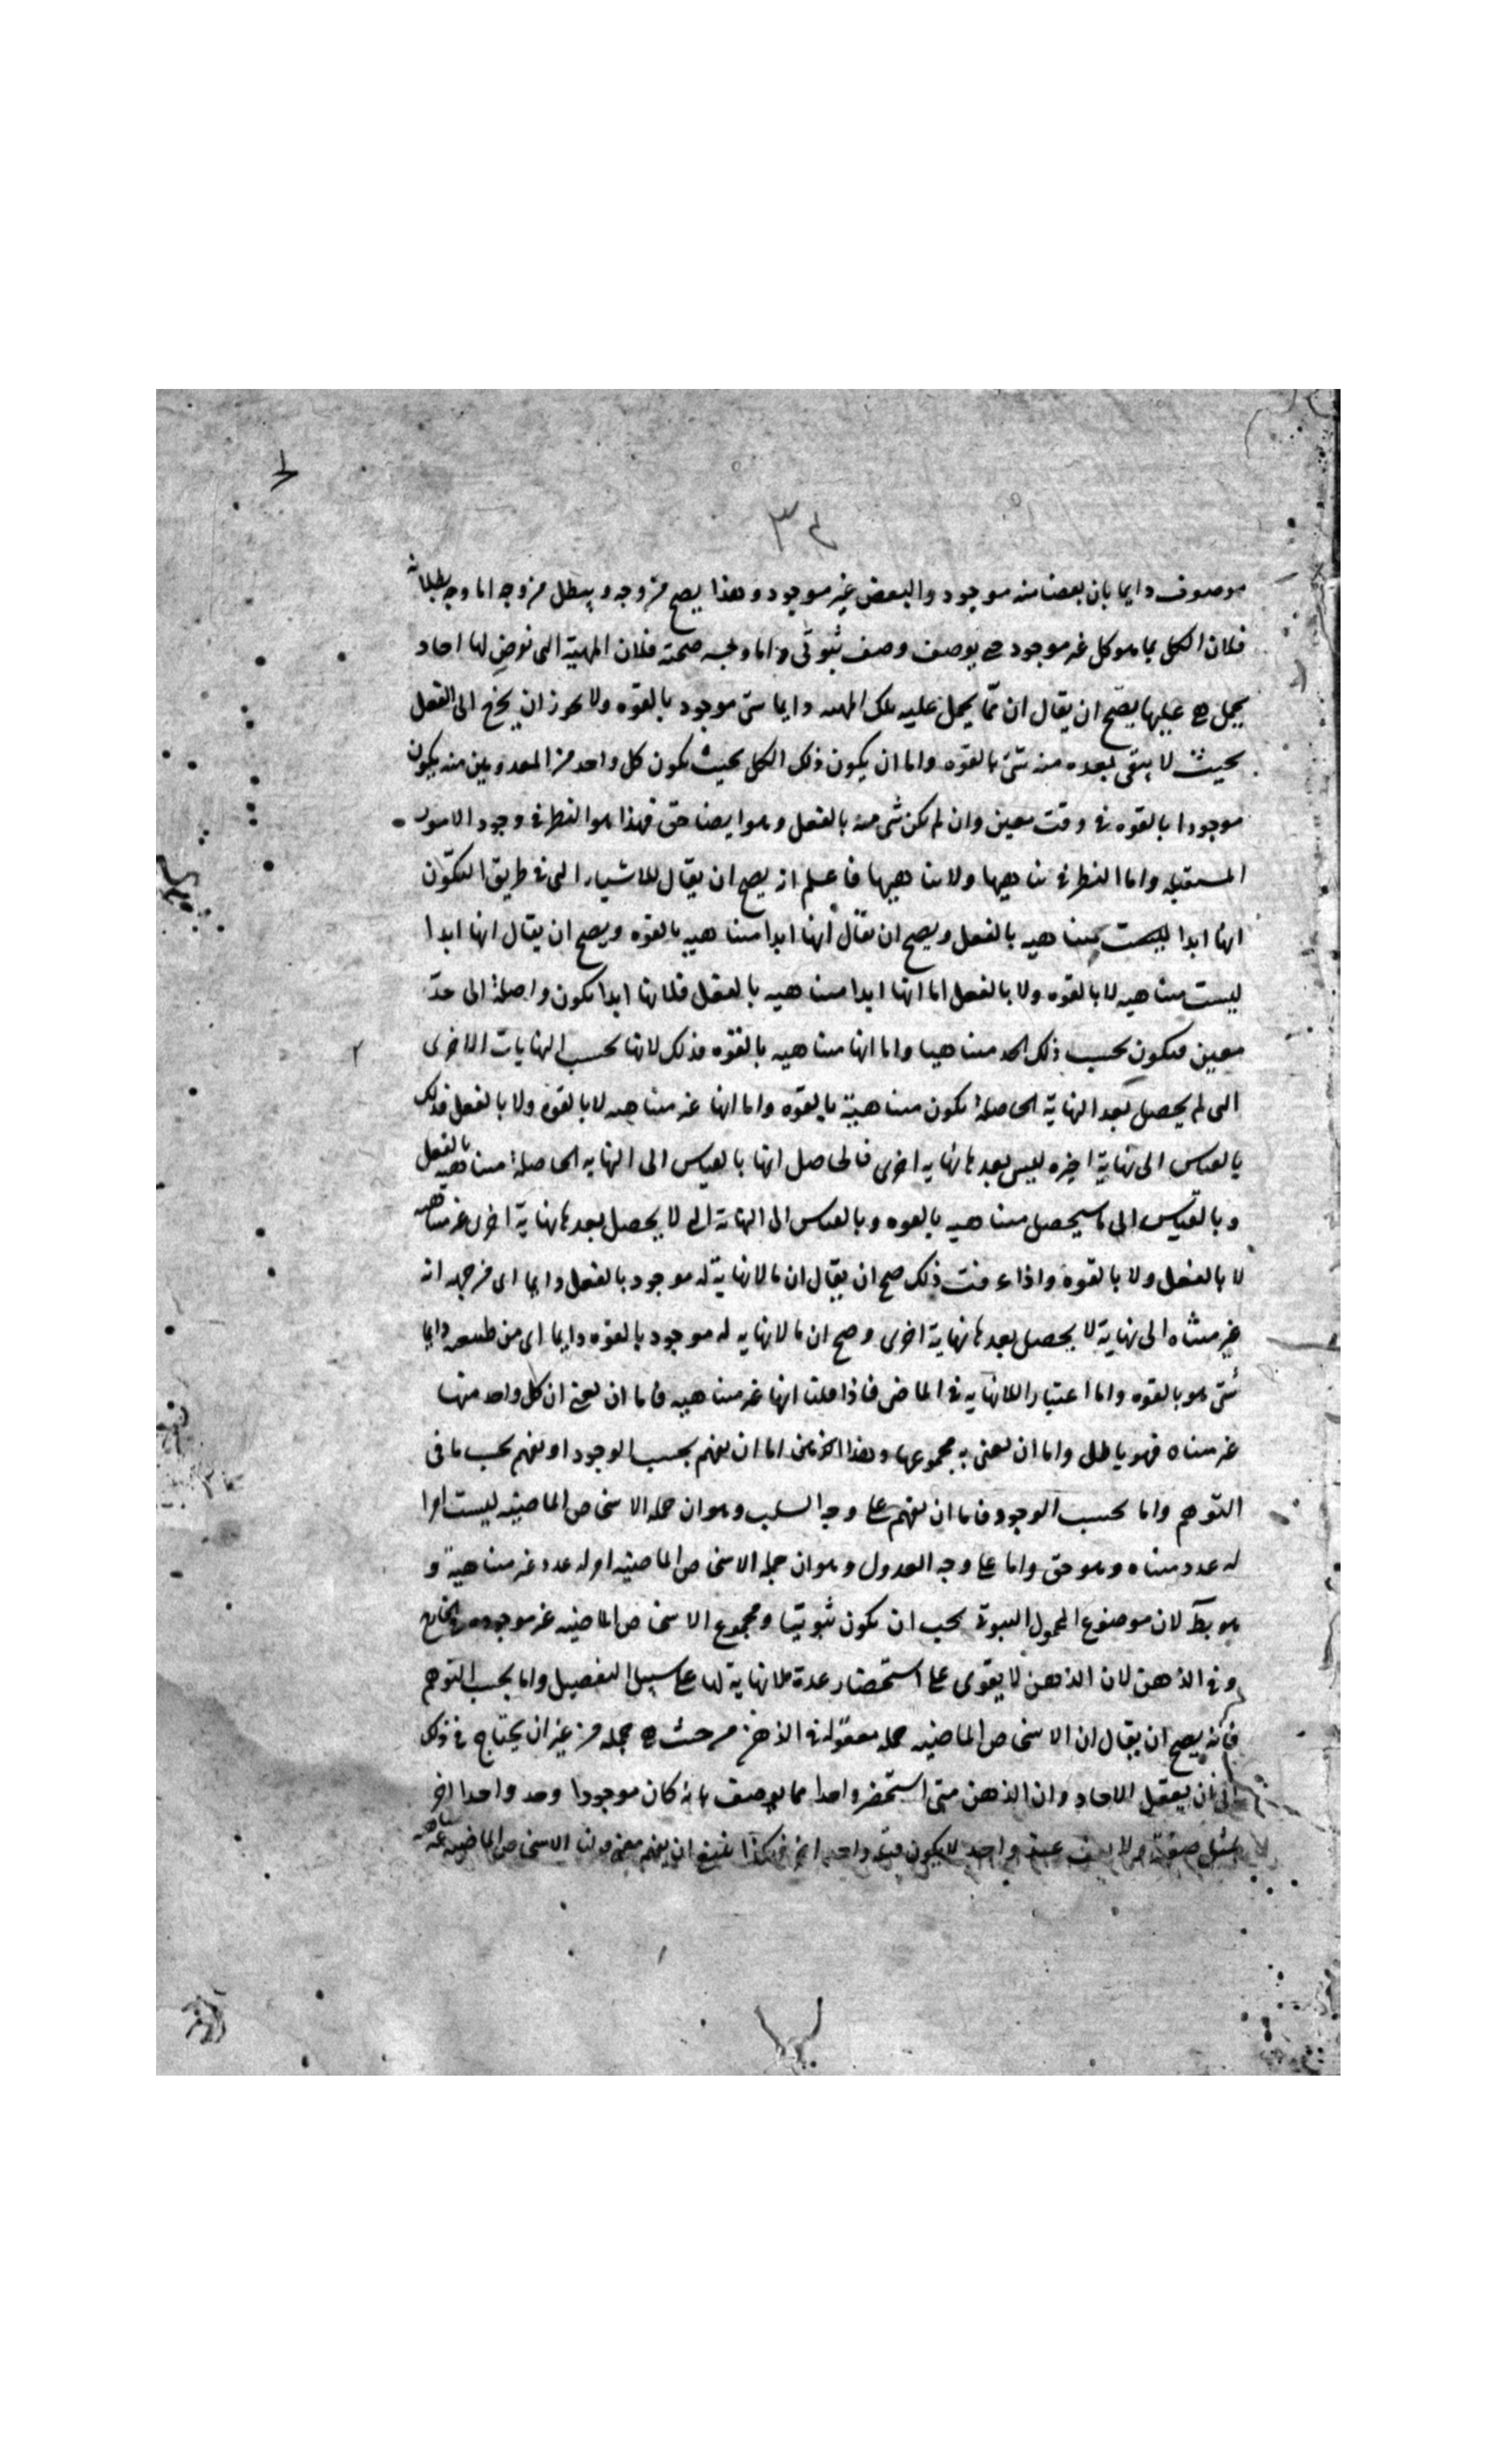 ٣٤
موصوف دايما بان بعضا منه موجود والبعض غير موجود وهذا يصح من وجه ويبطل من وجه اما وجه بطلانه
فلان الكل بما هو كل غير موجود حتى يوصف وصف ثبوتى واما وجه صحته فلان المهية التى نفرض لها احاد
يحمل هى عليها يصح ان يقال ان مما يحمل عليه تلك المهيه دايما شى موجود بالقوه ولا يجوز ان يخرج الى الفعل
بحيث لا يبقى بعده منه شئ بالقوه واما ان يكون ذلك الكل بحيث يكون كل واحد من المعدومين منه يكون
موجودا بالقوه فى وقت معين وان لم يكن شى منه بالفعل وهو ايضا حق فهذا هو النظر فى وجود الامور
المستقبله واما النظر فى تناهيها ولا تناهيها فاعلم انه يصح ان يقال للاشياء التى فى طريق التكون
انها ابدا ليست متناهيه بالفعل ويصح ان يقال انها ابدا متناهيه بالقوه ويصح ان يقال انها ابدا
ليست متناهيه لا بالقوه ولا بالفعل اما انها ابدا متناهيه بالفعل فلانها ابدا تكون واصلة الى حد
معين فتكون بحسب ذلك الحد متناهيا واما انها متناهيه بالقوه فذلك لانها بحسب النهايات الاخرى
التى لم يحصل بعد النهاية الحاصلة تكون متناهية بالقوه واما انها غير متناهيه لا بالقوه ولا بالفعل فذلك
بالقياس الى نهاية اخيره ليس بعدها نهايه اخرى فالحاصل انها بالقياس الى النهايه الحاصلة متناهيه بالفعل
وبالقياس الى ما سيحصل متناهيه بالقوه وبالقياس الى النهاية التى لا يحصل بعدها نهاية اخرى غير متناهيه
لا بالفعل ولا بالقوة واذا عرفت ذلك صح ان يقال ان ما لا نهاية له موجود بالفعل دايما اى من جهه انه
غير متناه الى نهاية لا يحصل بعدها نهاية اخرى وصح ان ما لا نهايه له موجود بالقوه دايما اى من طبيعته دايما
شئ هو بالقوه واما اعتبار اللانهايه فى الماضى فاذا قلنا انها غير متناهيه فاما ان نعنى ان كل واحد منها
غير متناه فهو باطل واما ان نعنى به مجموعها وهذا اما ان يفهم بحسب الوجود او يفهم بحسب ما فى
التوهم واما بحسب الوجود فاما ان يفهم على وجه السلب وهو ان جمله الاشخاص الماضيه ليست امرا
له عدد متناه وهو حق واما على وجه العدول وهو ان جمله الاشخاص الماضيه امر له عدد غير متناهية و
هو بط لان موضوع المحمول يجب ان يكون ثبوتيا ومجموع الاشخاص الماضيه غير موجوده فى الخارج
وفى الذهن لان الذهن لا يقوى على استحضار عدة لا نهاية لها على سبيل التفصيل واما بحسب التوهم
فانه يصح ان يقال ان الاشخاص الماضيه جمله معقولة فى الذهن من حيث هى جمله من غير ان يحتاج فى ذلك
الى ان يعقل الاحاد وان الذهن متى استحضر واحدا مما يوصف بانه كان موجودا وجد واحدا اخر
بمثل صفته ولا واحد لا يكون قبله واحد اخر فهكذا ينبغى ان يفهم معنى قولنا الاشخاص الماضيه غير متناهيه